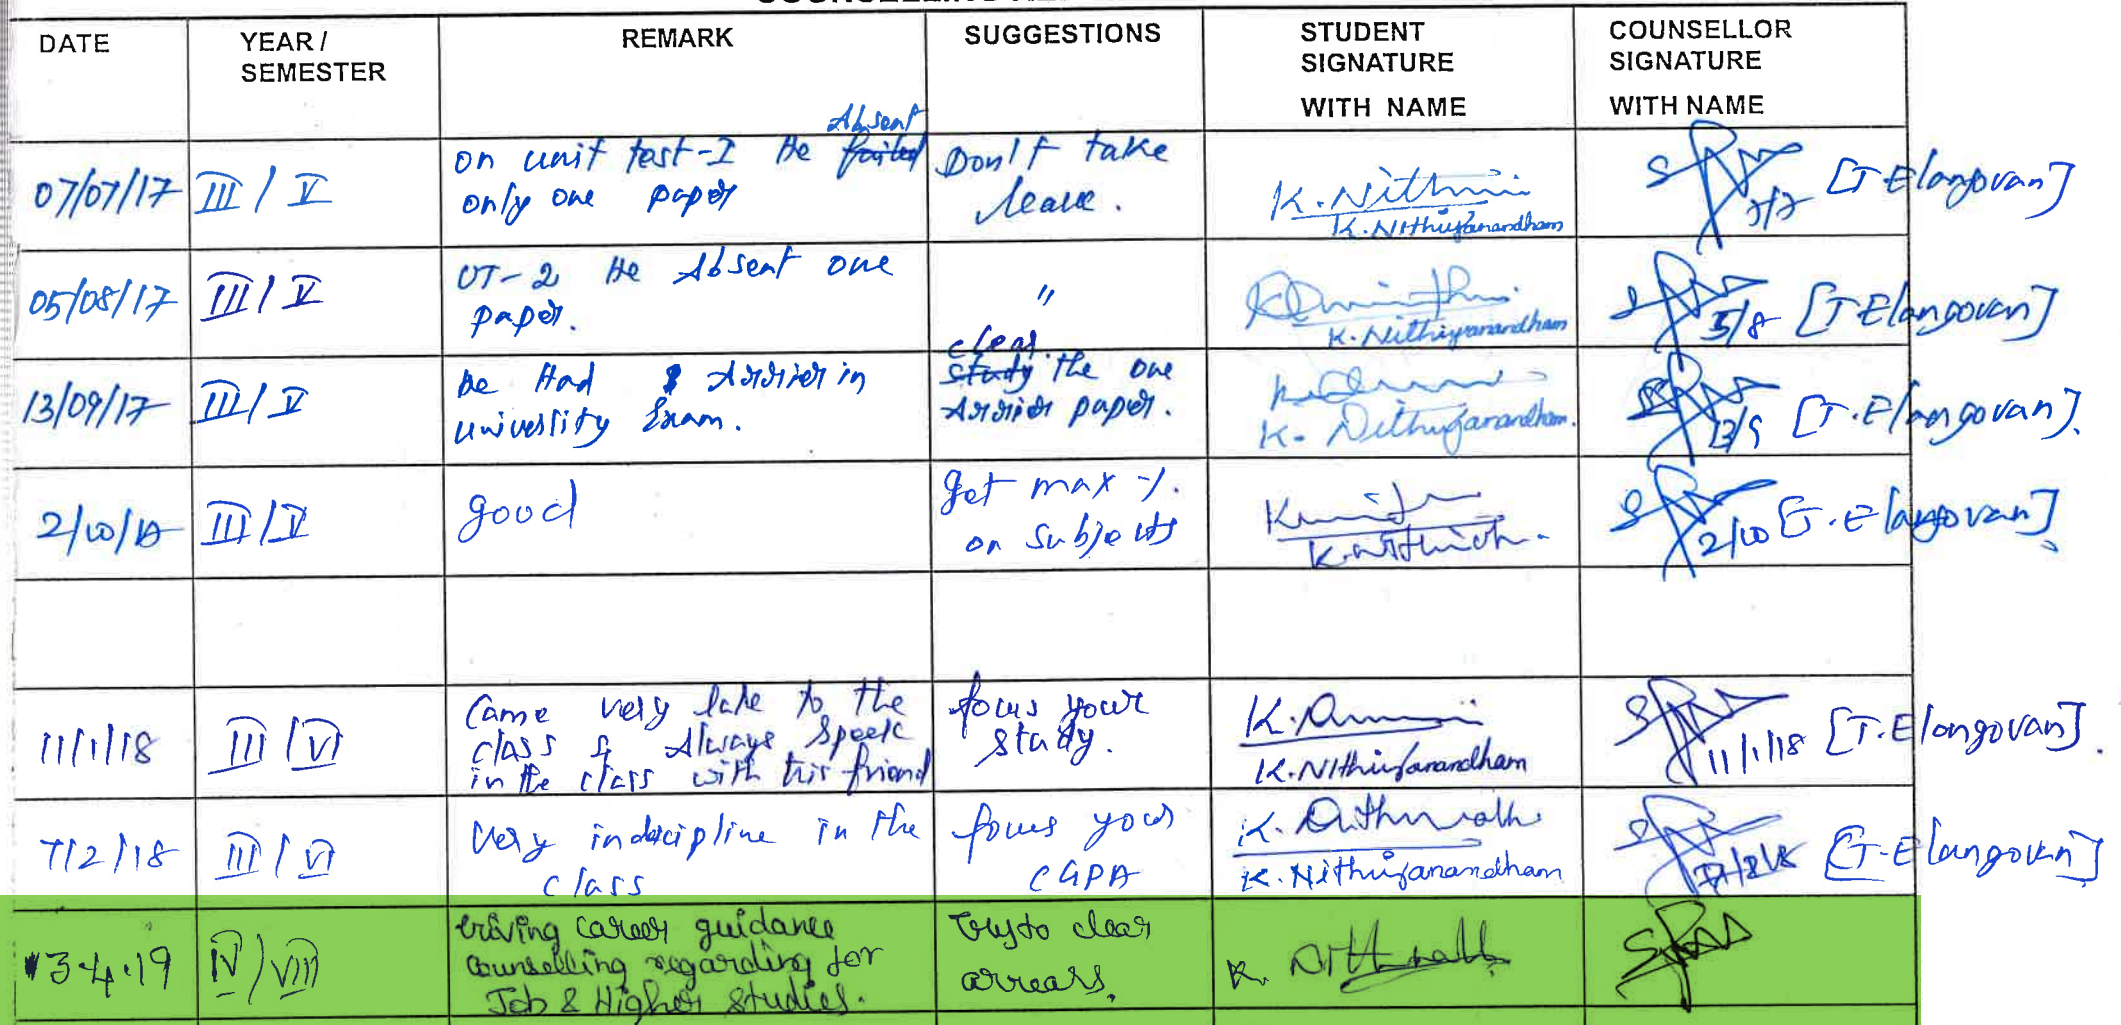 DATE YEAR / SEMESTER REMARK SUGGESTIONS STUDENT SIGNATURE WITH NAME COUNSELLOR SIGNATURE WITH NAME
07/07/17 III / V on unit test-I He failed Absent only one paper Don't take leave. K.Nithiyanandham 7/7 [T.Elangovan]
05/08/17 III / V UT-2 He Absent one paper. " K.Nithiyanandham 5/8 [T.Elangovan]
13/09/17 III / V he Had Arrier in university Exam. study clear the one Arrier paper. K. Nithiyanandham. 13/9 [T.Elangovan].
2/10/17 III / V good get max %. on subjects 2/10 [T.Elangovan]
11/1/18 III / VI Came very late to the class & Always Speek in the class with his friend focus your study. K.Nithiyanandham 11/1/18 [T.Elangovan].
7/2/18 III / VI Very indecipline in the class focus your CGPA K.Nithiyanandham [T.Elangovan]
13.4.19 IV / VIII Giving career guidance counselling regarding for Job & Higher studies. Try to clear arrears.